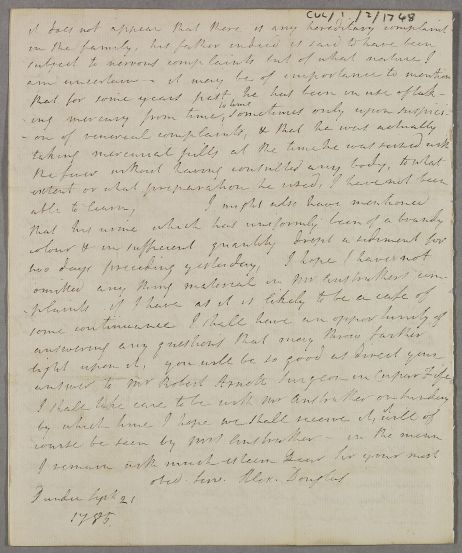 CUL/1/2/1748
it does not appear that there is any hereditary complaint
in the family, his father indeed is said to have been
subject to nervous complaints but of what nature I
am uncertain - it may be of importance to mention
that for some years past he has been in use of tak-
-ing mercury from time to time, sometimes only upon suspici-
-on of venereal complaints, & that he was actually
taking mercurial pills at the time he was seized with
the fever without having consulted any body, to what
extent or what preparation he used, I have not been
able to learn, I might also have mentioned
that his urine which has uniformly been of a brandy
colour & in sufficient quantity dropt a sediment for
two days preceding yesterday, I hope I have not
omitted any thing material in Mr Anstruthers com-
-plaints if I have as it is likely to be a case of
some continuance I shall have an opportunity of
answering any questions that may throw farther
light upon it, you will be so good as direct your
answer to Mr Robert Arnott Surgeon in Cupar Fife
I shall take care to be with Mr Anstruther on Sunday
by which time I hope we shall receive it, it will of
course be seen by Mrs Anstruther - in the mean
I remain with much esteem Dear Sir your most
obed. Serv. Alexr. Douglas
Dundee Sept 21
1785.